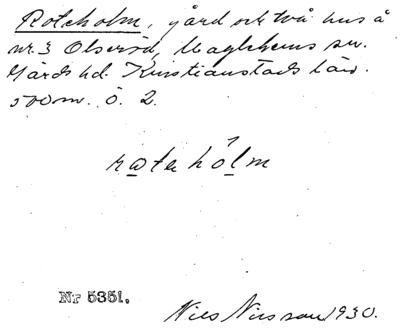 Roteholm, gård och två hus å
nr. 3 Olseröd, Maglehems sn.
Gärds hd. Kristianstads län.
500 m. ö. 2.
rateholm
Nr 5351.
Nils Nilsson 1930.